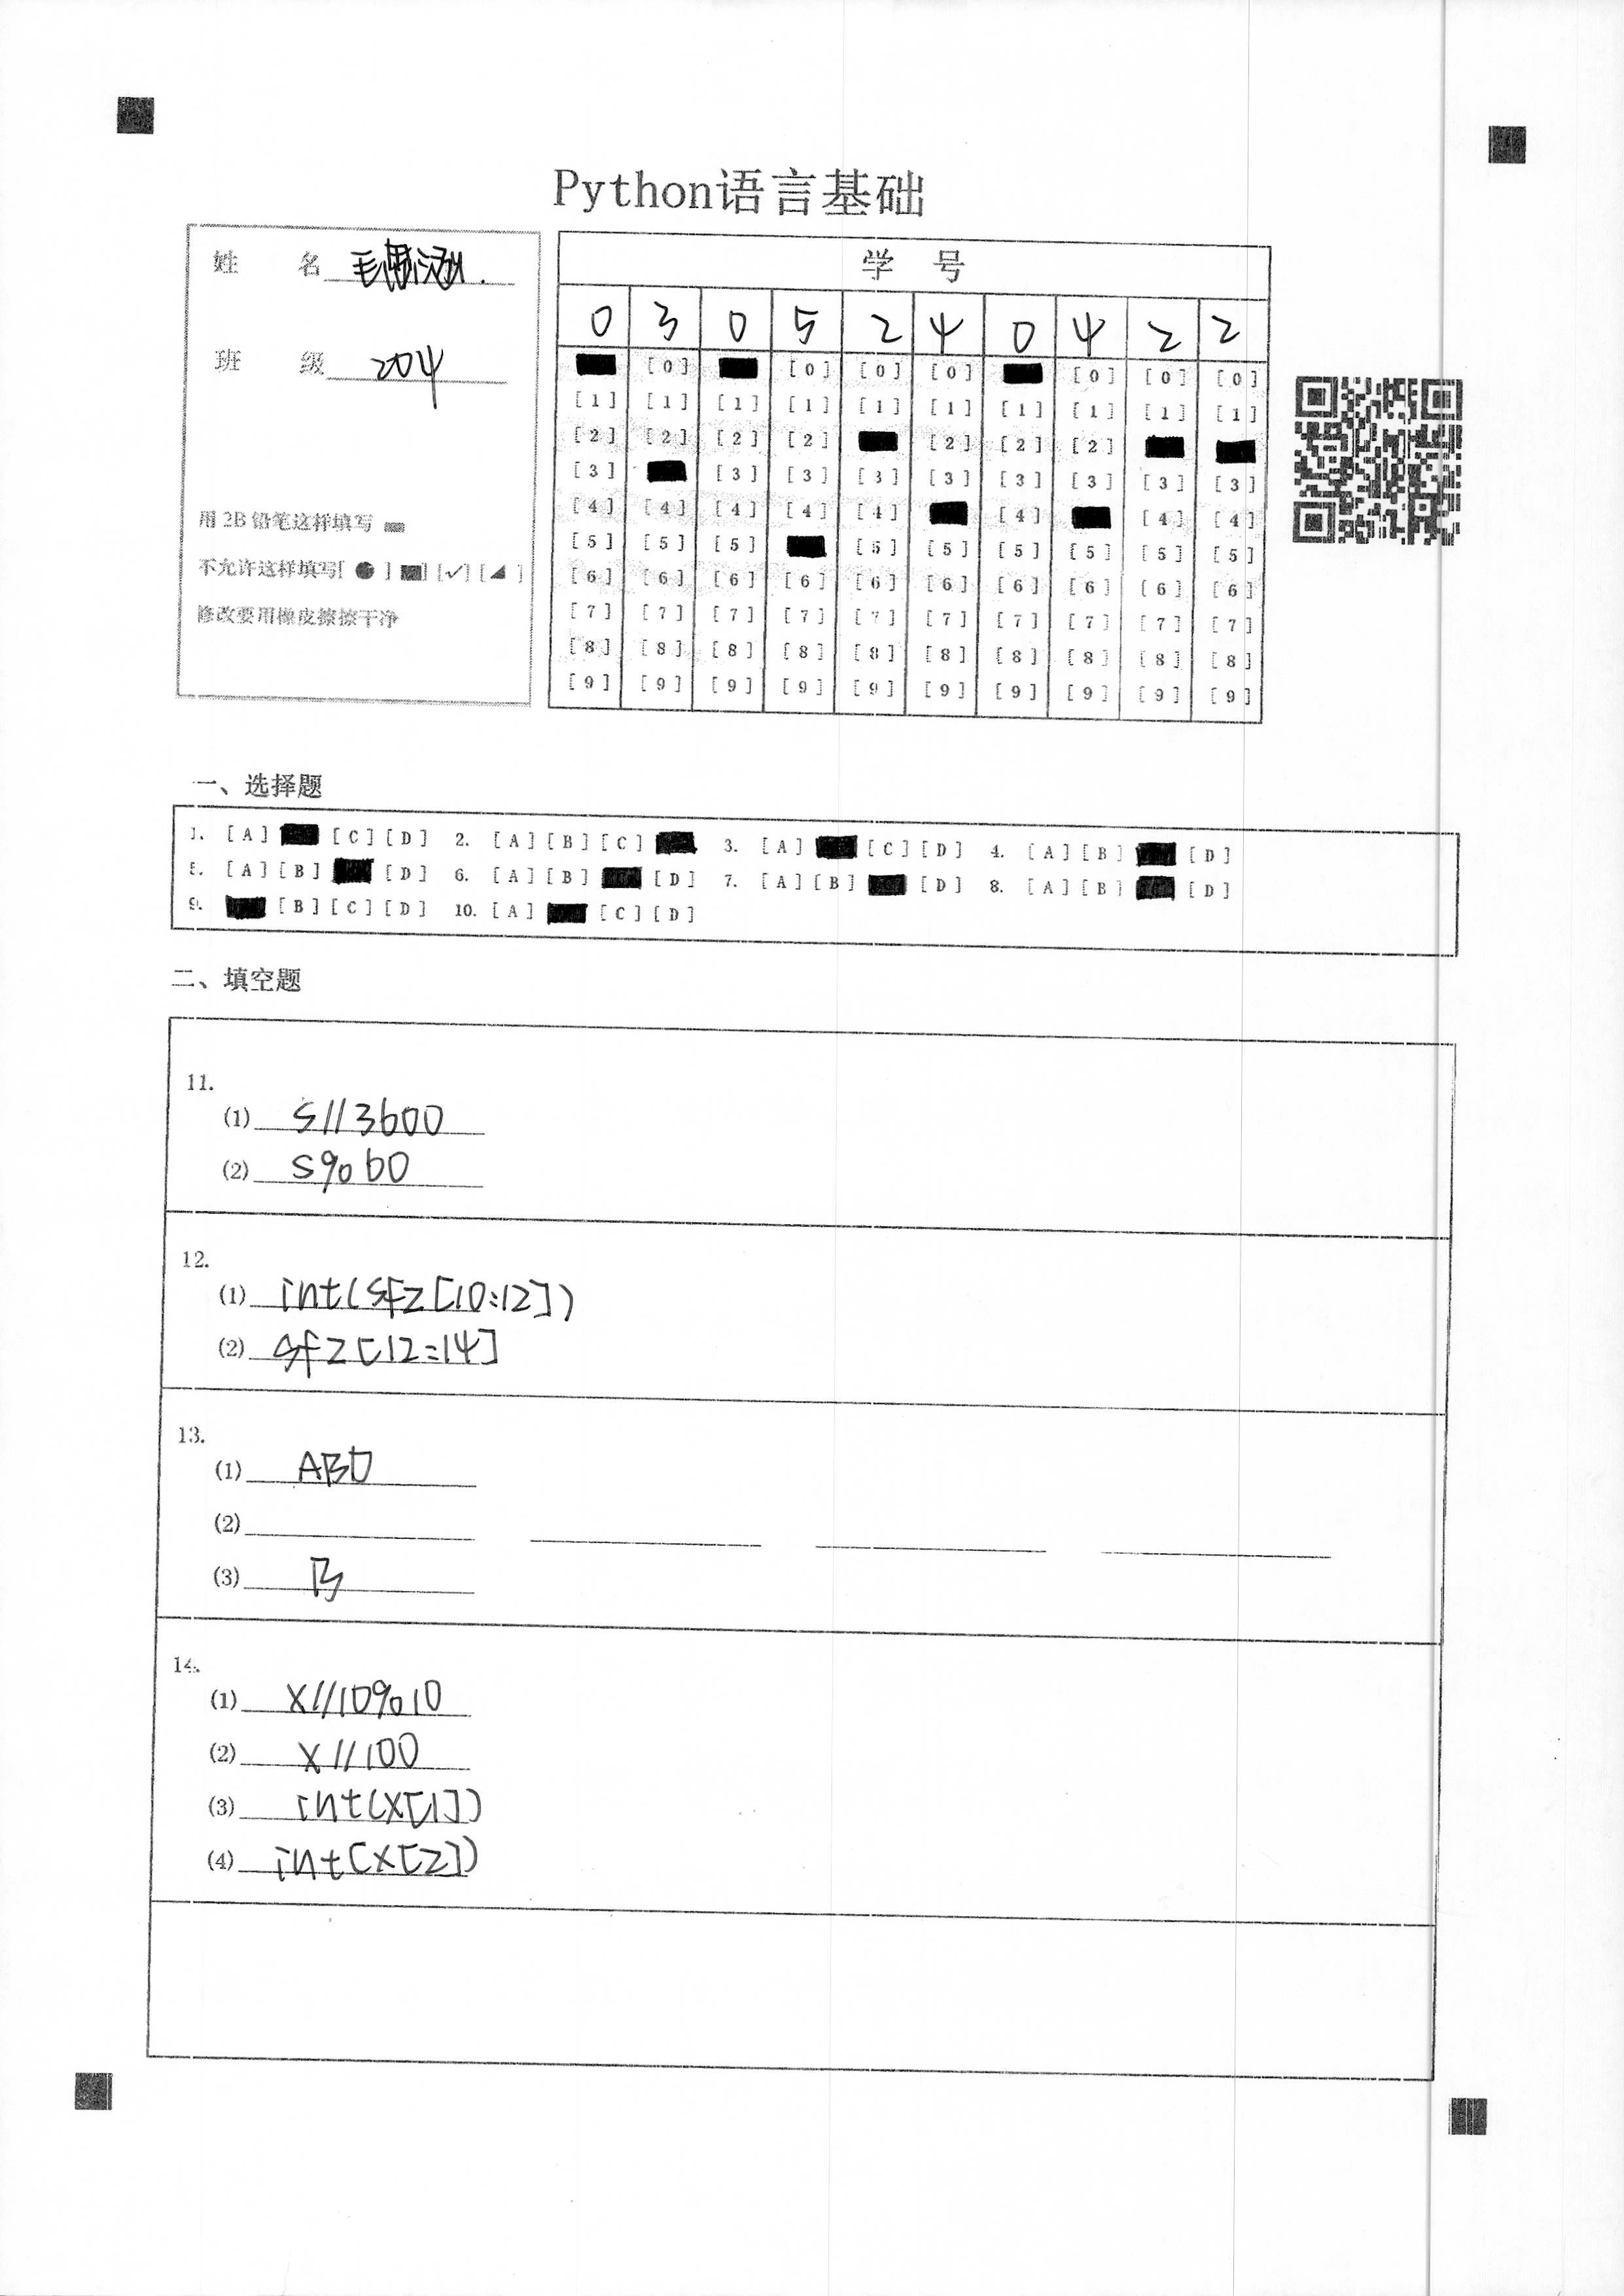 Python语言基础
姓 名 毛
班 级 204
用 2B 铅笔这样填写
不允许这样填写[ ● ] [■] [✓] [◢ ]
修改要用橡皮擦擦干净
学 号
0 3 0 5 2 4 0 4 2 2
[0] [0] [0] [0] [0] [0] [0]
[1] [1] [1] [1] [1] [1] [1] [1] [1] [1]
[2] [2] [2] [2] [2] [2] [2]
[3] [3] [3] [3] [3] [3] [3] [3] [3]
[4] [4] [4] [4] [4] [4] [4] [4]
[5] [5] [5] [5] [5] [5] [5] [5] [5]
[6] [6] [6] [6] [6] [6] [6] [6] [6] [6]
[7] [7] [7] [7] [7] [7] [7] [7] [7] [7]
[8] [8] [8] [8] [8] [8] [8] [8] [8] [8]
[9] [9] [9] [9] [9] [9] [9] [9] [9] [9]
一、选择题
1. [A] [C] [D] 2. [A] [B] [C] 3. [A] [C] [D] 4. [A] [B] [D]
5. [A] [B] [D] 6. [A] [B] [D] 7. [A] [B] [D] 8. [A] [B] [D]
9. [B] [C] [D] 10. [A] [C] [D]
二、填空题
11.
(1) s//3600
(2) s%60
12.
(1) int(sfz[10:12])
(2) sfz[12:14]
13.
(1) ABD
(2)
(3) B
14.
(1) x//10%10
(2) x//100
(3) int(x[1])
(4) int[x[2])